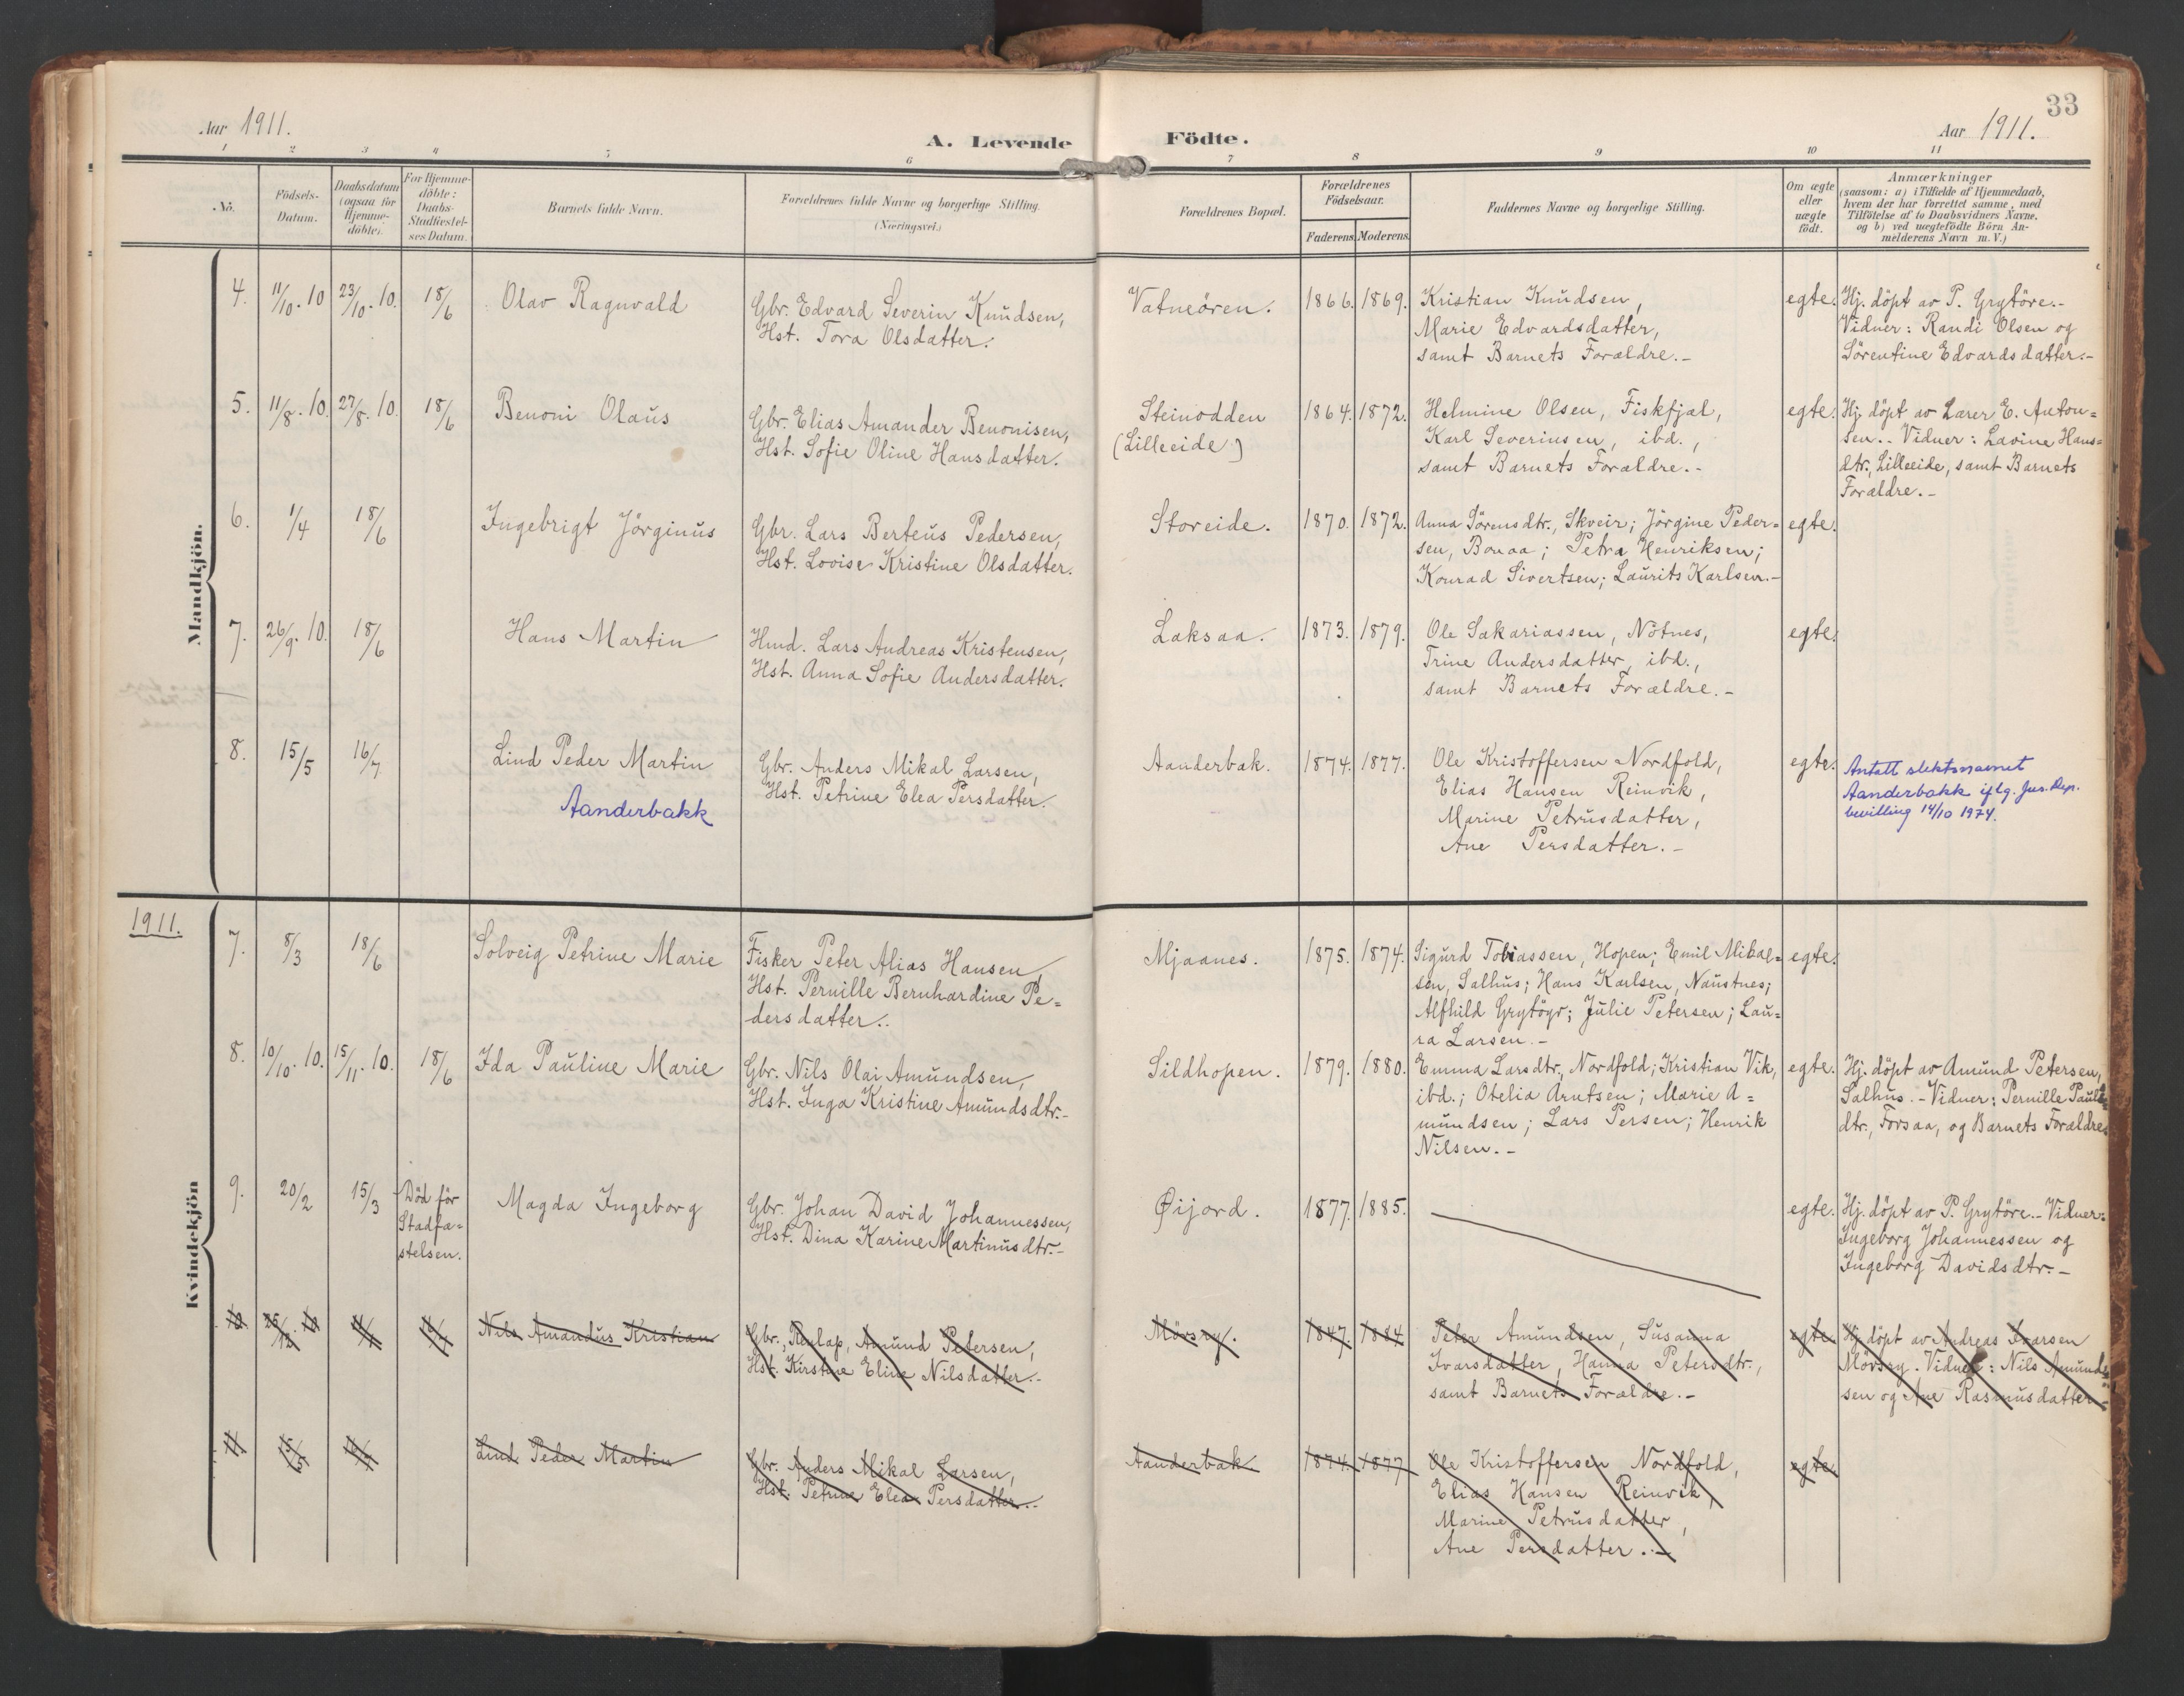 33
Aar 1911.
A. Levende Födte.
Aar 1911.
1 2 3 4 5 6 7 8 9 10 11
No.
Födsels-
Datum.
Daabsdatum
(ogsaa for
Hjemme-
döbte).
For Hjemme-
döbte:
Daabs-
Stadfæstel-
ses Datum.
Barnets fulde Navn.
Forældrenes fulde Navne og borgerlige Stilling.
(Næringsvei.)
Forældrenes Bopæl.
Forældrenes
Födselsaar.
Faderens. Moderens.
Faddernes Navne og borgerlige Stilling.
Om ægte
eller
uægte
födt.
Anmærkninger
(saasom: a) i Tilfælde af Hjemmedaab,
hvem der har forrettet samme, med
Tilföielse af to Daabsvidners Navne,
og b) ved uægtefödte Börn An-
melderens Navn m. V.)
Mandkjön.
4. 11/10. 10 23/10. 10. 18/6 Olav Ragnvald
Gbr. Edvard Severin Knudsen,
Hst. Tora Olsdatter.
Vatneören. 1866. 1869.
Kristian Knudsen,
Marie Edvardsdatter,
samt Barnets Forældre.-
egte.
Hj. döpt av P. Grytöre.-
Vidner: Randi Olsen og
Sörentine Edvardsdatter.-
5. 11/8. 10. 27/8. 10. 18/6 Benoni Olaus
Gbr. Elias Amander Benonisen,
Hst. Sofie Oline Hansdatter.
Steinodden
(Lilleeide)
1864. 1872.
Helmine Olsen, Fiskfjæl,
Karl Severinsen, ibd.,
samt Barnets Forældre.-
egte.
Hj. döpt av Lærer E. Anton=
sen.. Vidner: Lavine Hans=
dtr., Lilleeide, samt Barnets
Forældre.-
6. 1/4 18/6 Ingebrigt Jörginus
Gbr. Lars Berteus Pedersen,
Hst. Lovise Kristine Olsdatter.
Storeide. 1870. 1872.
Anna Sörensdtr., Skveir; Jörgine Peder=
sen, Bonaa; Petra Henriksen;
Konrad Sivertsen; Laurits Karlsen.-
egte.
7. 26/9. 10. 18/6 Hans Martin
Hmd. Lars Andreas Kristensen,
Hst. Anna Sofie Andersdatter.
Laksaa. 1873. 1879.
Ole Sakariassen, Nötnes,
Trine Andersdatter, ibd.,
samt Barnets Forældre.-
egte.
8. 15/5 16/7 Lind Peder Martin
Aanderbakk
Gbr. Anders Mikal Larsen,
Hst. Petrine Elea Persdatter.
Aanderbak. 1874. 1877.
Ole Kristoffersen Nordfold,
Elias Hansen Reinvik,
Marine Petrusdatter,
Ane Persdatter.-
egte.
Antatt slektsnavnet
Aanderbakk iflg. Jus. Dep.
bevilling 14/10 1974.
1911.
Kvindekjön
7. 8/3 18/6 Solveig Petrine Marie
Fisker Peter Alias Hansen
Hst. Pernille Bernhardine Pe=
dersdatter..
Mjaanes. 1875. 1874.
Sigurd Tobiassen, Hopen; Emil Mikal=
sen, Salhus; Hans Karlsen, Naustnes;
Alfhild Grytöyr; Julie Petersen; Lau=
ra Larsen.-
egte.
8. 10/10. 10. 15/11. 10. 18/6 Ida Pauline Marie
Gbr. Nils Olai Amundsen,
Hst. Inga Kristine Amundsdtr.-
Sildhopen. 1879. 1880.
Emma Larsdtr., Nordfold; Kristian Vik,
ibd.; Otelia Arntsen; Marie A=
mundsen; Lars Persen; Henrik
Nilsen.-
egte.
Hj. döpt av Amund Petersen,
Salhus.- Vidner: Pernille Pauls=
dtr., Forsaa, og Barnets Forældre.
9. 20/2 15/3 Död för
Stadfæ=
stelsen.
Magda Ingeborg
Gbr. Johan David Johannessen,
Hst. Dina Karine Martinusdtr.-
Øijord. 1877. 1885.
egte.
Hj. döpt av P. Grytöre.- Vidner:
Ingeborg Johannessen og
Ingeborg Davidsdtr.-
Nils Amandus Kristian
Gbr., Amund Petersen,
Hst. Eline Nilsdatter.-
Mövsry. 1847. 1884
Peter Amundsen, Susanna
Ivarsdatter, Hanna Petersdtr.,
samt Barnets Forældre.-
egte.
Hj. döpt av Andreas Ivarsen
Mövsry. Vidner: Nils Amund=
sen og Ane Rasmusdatter-
15/5 Lind Peder Martin
Gbr. Anders Mikal Larsen,
Hst. Petrine Elea Persdatter..
Aanderbak 1874. 1877
Ole Kristoffersen Nordfold,
Elias Hansen Reinvik,
Marine Petrusdatter,
Ane Persdatter.-
egte.